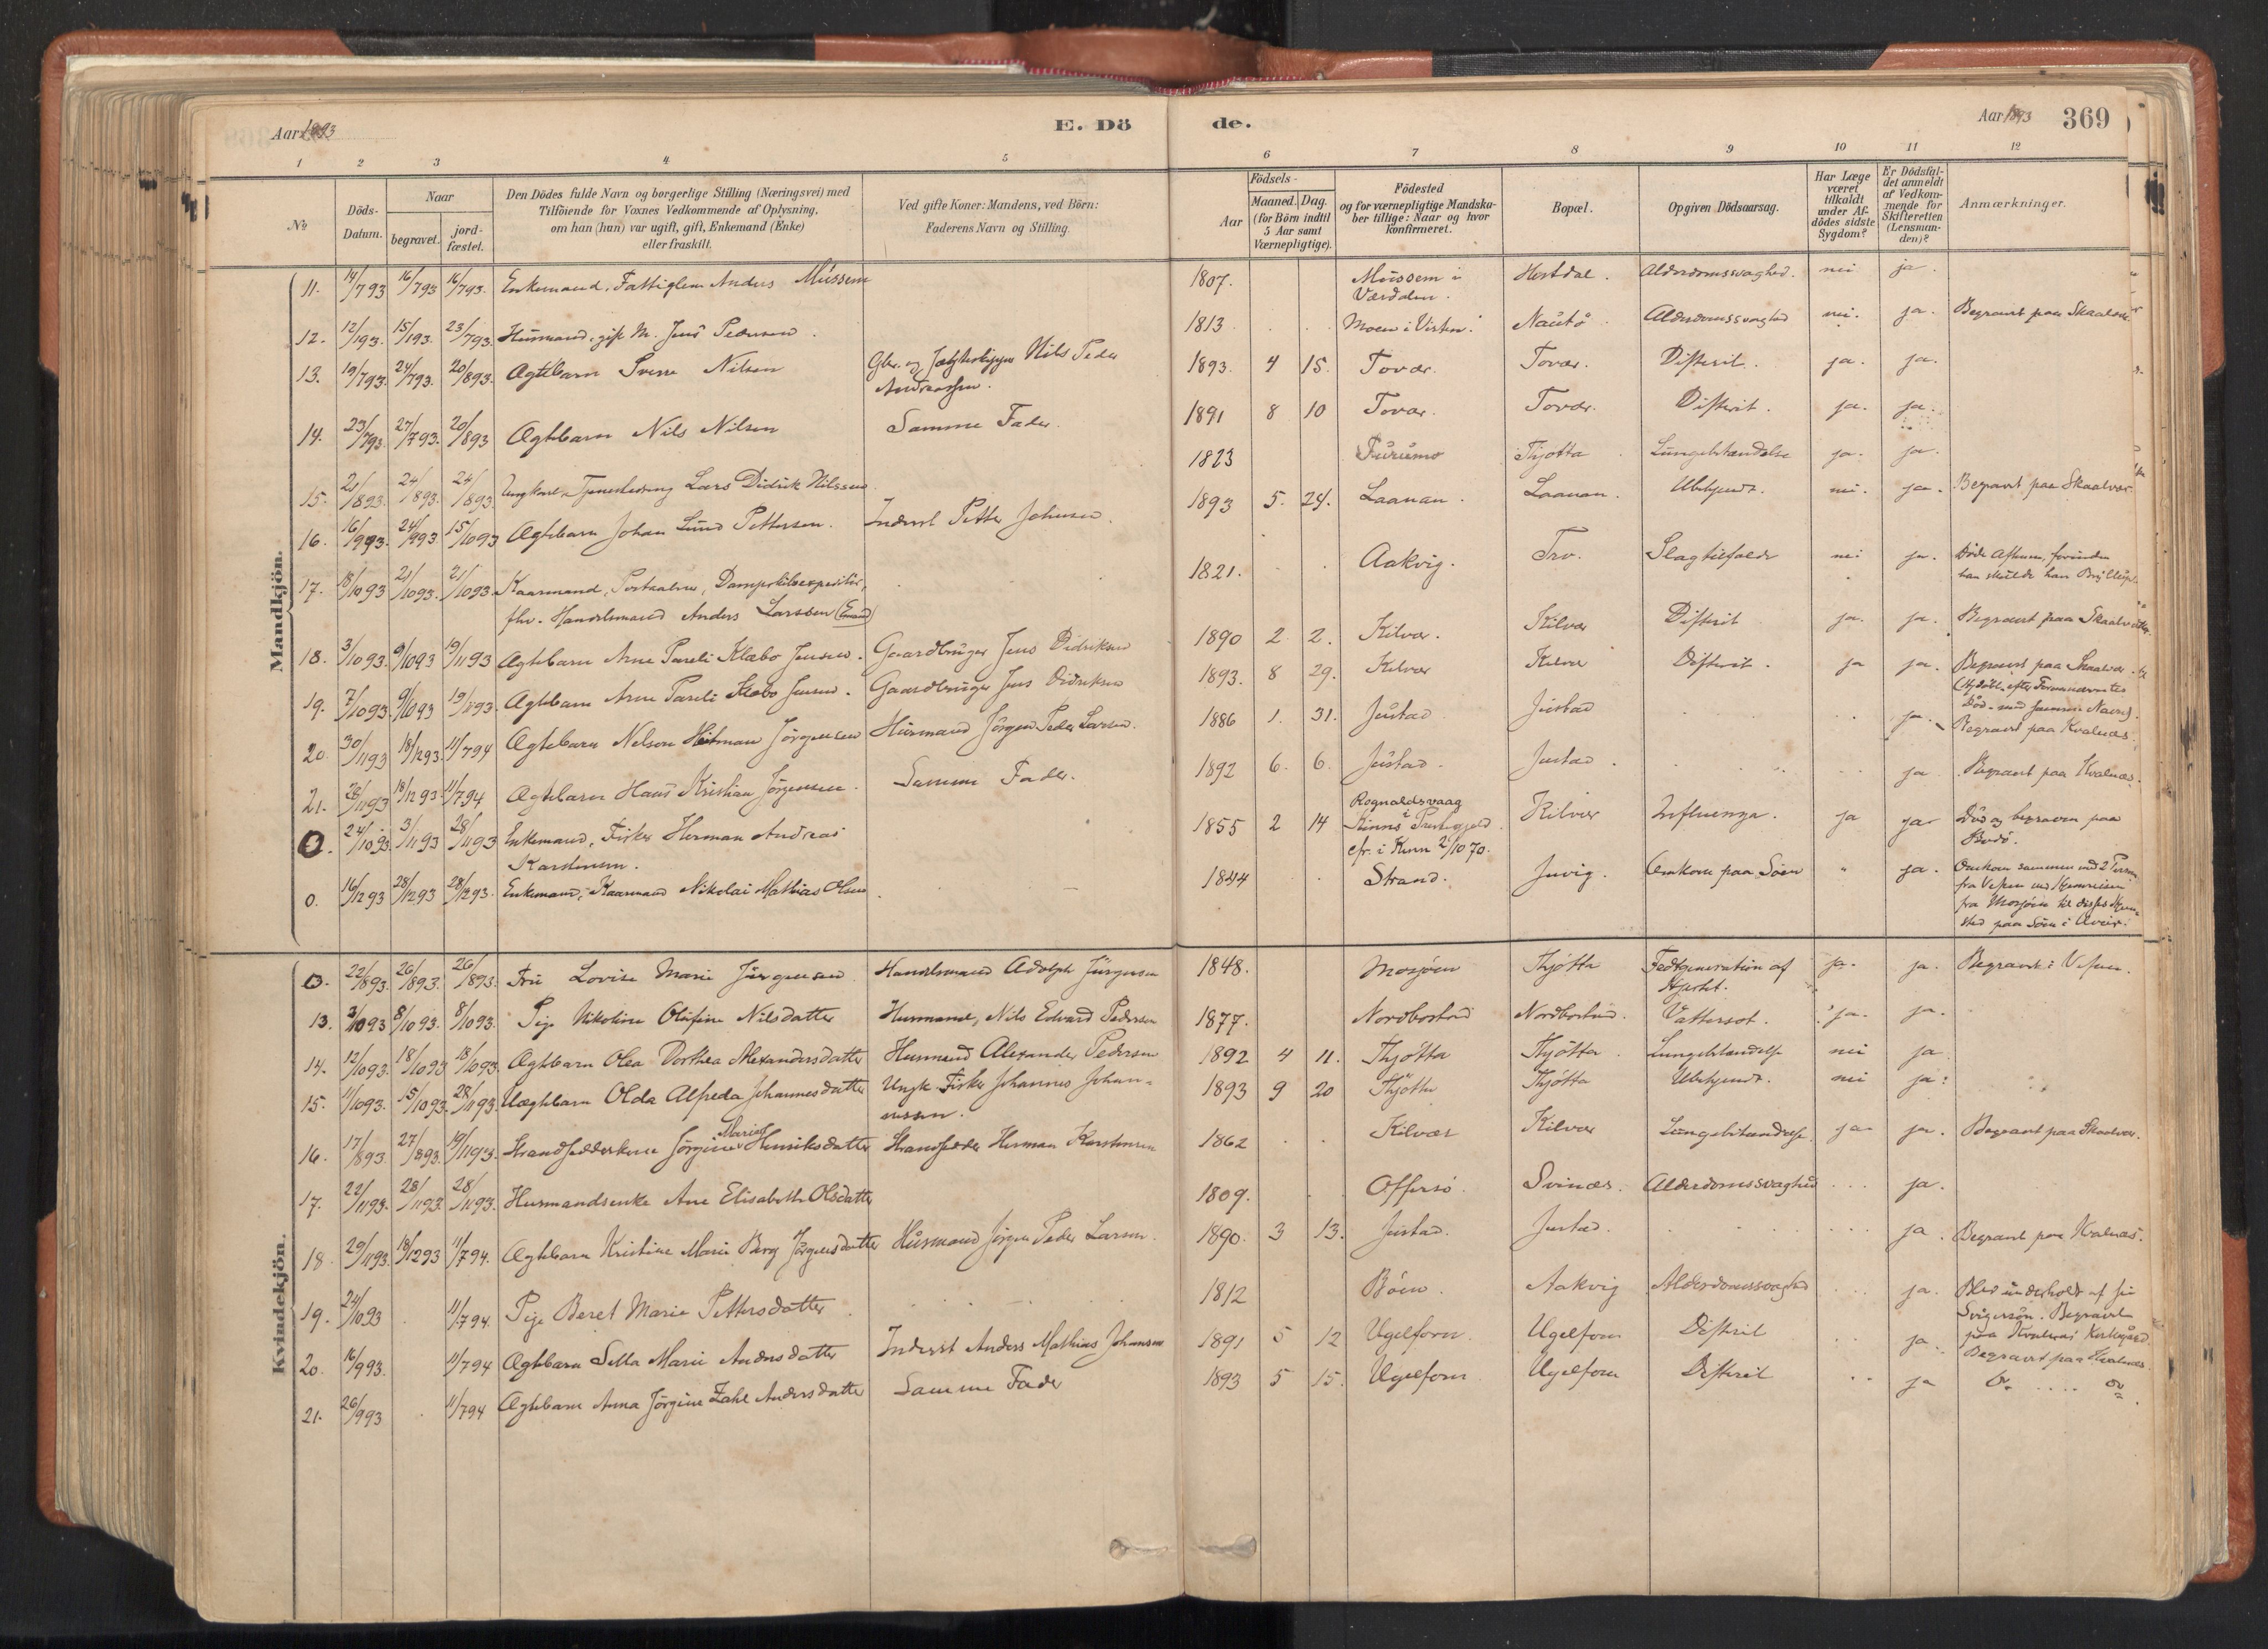 Aar 1893 E. Dö de. Aar 1893 369
1 2 3 4 5 6 7 8 9 10 11 12
№ Döds-Datum. Naar begravet. jord-fæstet. Den Dödes fulde Navn og borgerlige Stilling (Næringsvei) med Tilföiende for Voxnes Vedkommende af Oplysning, om han (hun) var ugift, gift, Enkemand (Enke) eller fraskilt. Ved gifte Koner: Mandens, ved Börn: Faderens Navn og Stilling. Födsels- Aar Maaned. Dag. (for Börn indtil 5 Aar samt Værnepligtige). Födested og for værnepligtige Mandskaber tillige: Naar og hvor konfirmeret. Bopæl. Opgiven Dödsaarsag. Har Læge været tilkaldt under Afdödes sidste Sygdom? Er Dödsfaldet anmeldt af Vedkommende for Skifteretten (Lensmanden)? Anmærkninger.
Mandkjön.
11. 14/793 16/793 16/793. Enkemand, Fattiglem Anders Müssem 1807. Müssem i Værdalen. Hestdal. Alderdomssvaghed. nei ja.
12. 12/193. 15/193. 23/793. Husmand, gift M. Jens Pedersen. 1813 Moen i Vefsn. Nautö Alderdomssvaghed nei. ja. Begravet paa Skaalvær.
13. 19/793. 24/793. 20/893. Ægtebarn Sverre Nilsen Gbr. og Jægteskipper Nils Peder Andreassen. 1893. 4 15. Tovær. Tovær. Difterit. ja. ja.
14. 23/793. 27/793. 20/893 Ægtebarn Nils Nilsen Samme Fader. 1891 8 10 Tovær. Tovær. Difterit. ja. ja.
15. 21/893. 24/893. 24/893. Ungkarl, Tjenestedreng Lars Didrik Nilssen. 1823 Furumo Thjötta Lungebetændelse ja. ja.
16. 16/993. 24/993. 15/1093 Ægtebarn Johan Lund Pettersen. Inderst Petter Johnsen. 1893 5. 24. Laanan. Laanan. Ubekjendt. nei. ja. Begravet paa Skaalvær.
17. 18/1093 21/1093. 21/1093. Kaarmand, Postaabner, Dampskibsexpeditör, fhv. Handelsmand Anders Larssen (Emand) 1821. Aakvig. Tro. Slagtilfælde nei ja. Döde Aftenen, forinden han skulde han Bryllup.
18. 3/1093. 9/1093 19/1193 Ægtebarn Arne Pareli Klæbo Jensen. Gaardbruger Jens Didriksen 1890 2. 2. Kilvær. Kilvær Difterit ja. ja. Begravet paa Skaalvær.
19. 7/1093. 9/1093 19/1193. Ægtebarn Arne Pareli Klæbo Jensen. Gaardbruger Jens Didriksen 1893. 8 29. Kilvær Kilvær Difterit. ja ja. Begravet paa Skaalvær. (Hjdöbt. efter Förnævntes Död - med samme Navn).
20. 30/1193 18/1293. 11/794 Ægtebarn Nelson Heitman Jörgensen Husmand Jörgen Peder Larsen. 1886 1. 31. Justad Justad ja. Begravet paa Kvalnæs.
21. 28/1193 18/1293 11/794 Ægtebarn Hans Kristian Jörgensen. Samme Fader. 1892 6. 6. Justad. Justad. ja Begravet paa Kvalnæs.
0. 24/1093 3/1193 28/1193 Enkemand, Fisker Herman Andreas Karstensen. 1855 2 14 Rognaldsvaag i Kinns Prestegjeld cfr. i Kinn 2/10 70. Kilvær Influenza. ja ja Död og begraven paa Bodö.
0. 16/1293 28/1293 28/1293. Enkemand, Kaarmand Nikolai Mathias Olsen 1844 Strand. Juvig. Omkom paa Söen " ja. Omkom sammen med 2 Personer fra Vefsen ved Hjemreisen fra Mosjöen til disses Hjemsted paa Söen i
Kvindekjön.
0. 22/893. 26/893. 26/893. Fru Lovise Marie Jürgensen Handelsmand Adolph Jürgensen 1848. Mosjöen Thjötta Fedtgeneration af Hjertet. ja. ja. Begravet i Vefsen.
13. 3/1093 8/1093. 8/1093. Pige Nikoline Olufine Nilsdatter Husmand, Nils Edvard Pedersen 1877. Nordbostad Nordbostad. Vattersot. ja. ja.
14. 12/1093. 18/1093 18/1093. Ægtebarn Olea Dorthea Alexandersdatter Husmand Alexander Pedersen 1892 4 11. Thjötta Thjötta Lungebetændelse nei ja
15. 11/1093. 15/1093. 28/1193. Uægtebarn Olda Alfreda Johannesdatter Ungk. Fisker Johannes Johanessen. 1893 9 20 Thjötta Thjötta Ubekjendt. nei ja.
16. 17/893. 27/893. 19/1193. Strandsidderkone Jörgine Marie Henriksdatter Strandsidder Herman Karstensen 1862 Kilvær Kilvær Lungebetændelse. ja ja. Begravet paa Skaalvær.
17. 22/1193. 28/1193. 28/1193. Husmandsenke Ane Elisabeth Olsdatter 1809. Offersö. Svinæs. Alderdomssvaghed ja.
18 29/1193. 18/1293 11/794. Ægtebarn Kristine Marie Berg Jörgensdatter Husmand Jörgen Peder Larsen. 1890. 3 13. Justad. Justad. ja. Begravet paa Kvalnæs.
19. 24/1093 11/794. Pige Beret Marie Pettersdatter 1812 Böen. Aakvig Alderdomssvaghed ja. Blev underholdt af sin Svigersön. Begravet paa Kvalnæs Kirkegaard
20. 16/993. 11/794 Ægtebarn Sella Marie Andersdatter Inderst Anders Mathias Johansen 1891 5 12 Ugelforn. Ugelforn Difterit ja. Begravet paa Kvalnæs.
21. 26/993 11/794 Ægtebarn Anna Jörgine Zahl Andersdatter Samme Fader 1893 5 15. Ugelforn Ugelforn Difterit ja